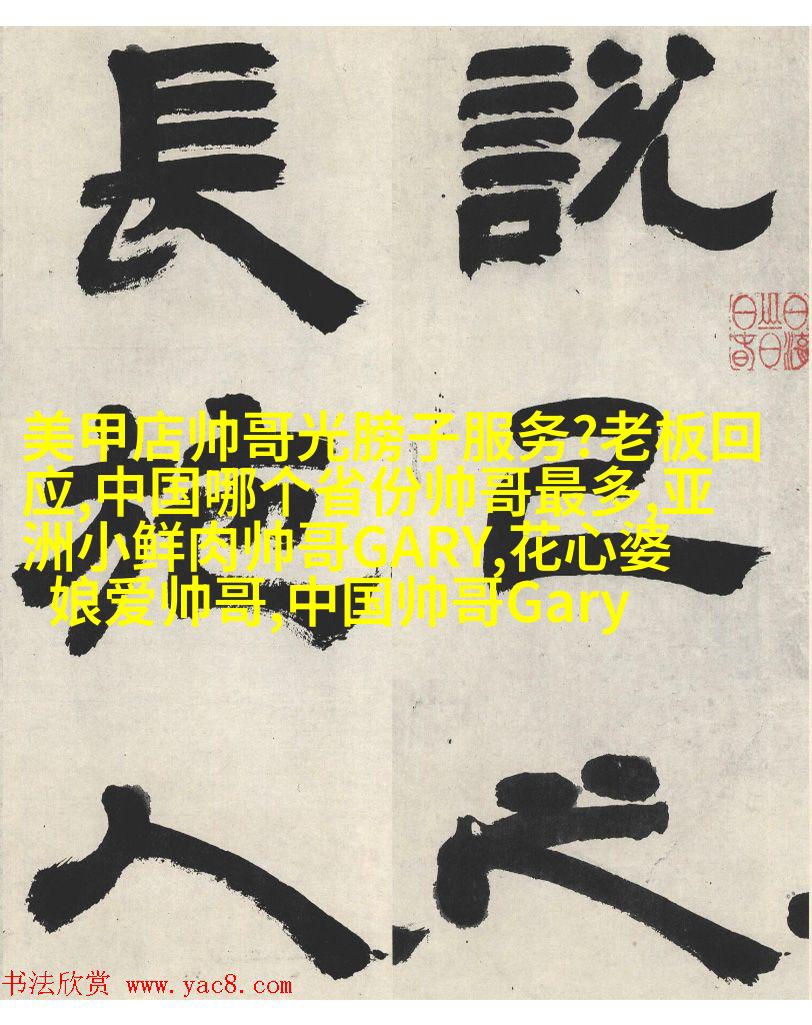 說己之
長施人
美甲店帅哥光膀子服务?老板回
应,中国哪个省份帅哥最多,亚
洲小鲜肉帅哥GARY,花心婆
娘爱帅哥,中国帅哥Gary
书法欣赏 www.yac8.com